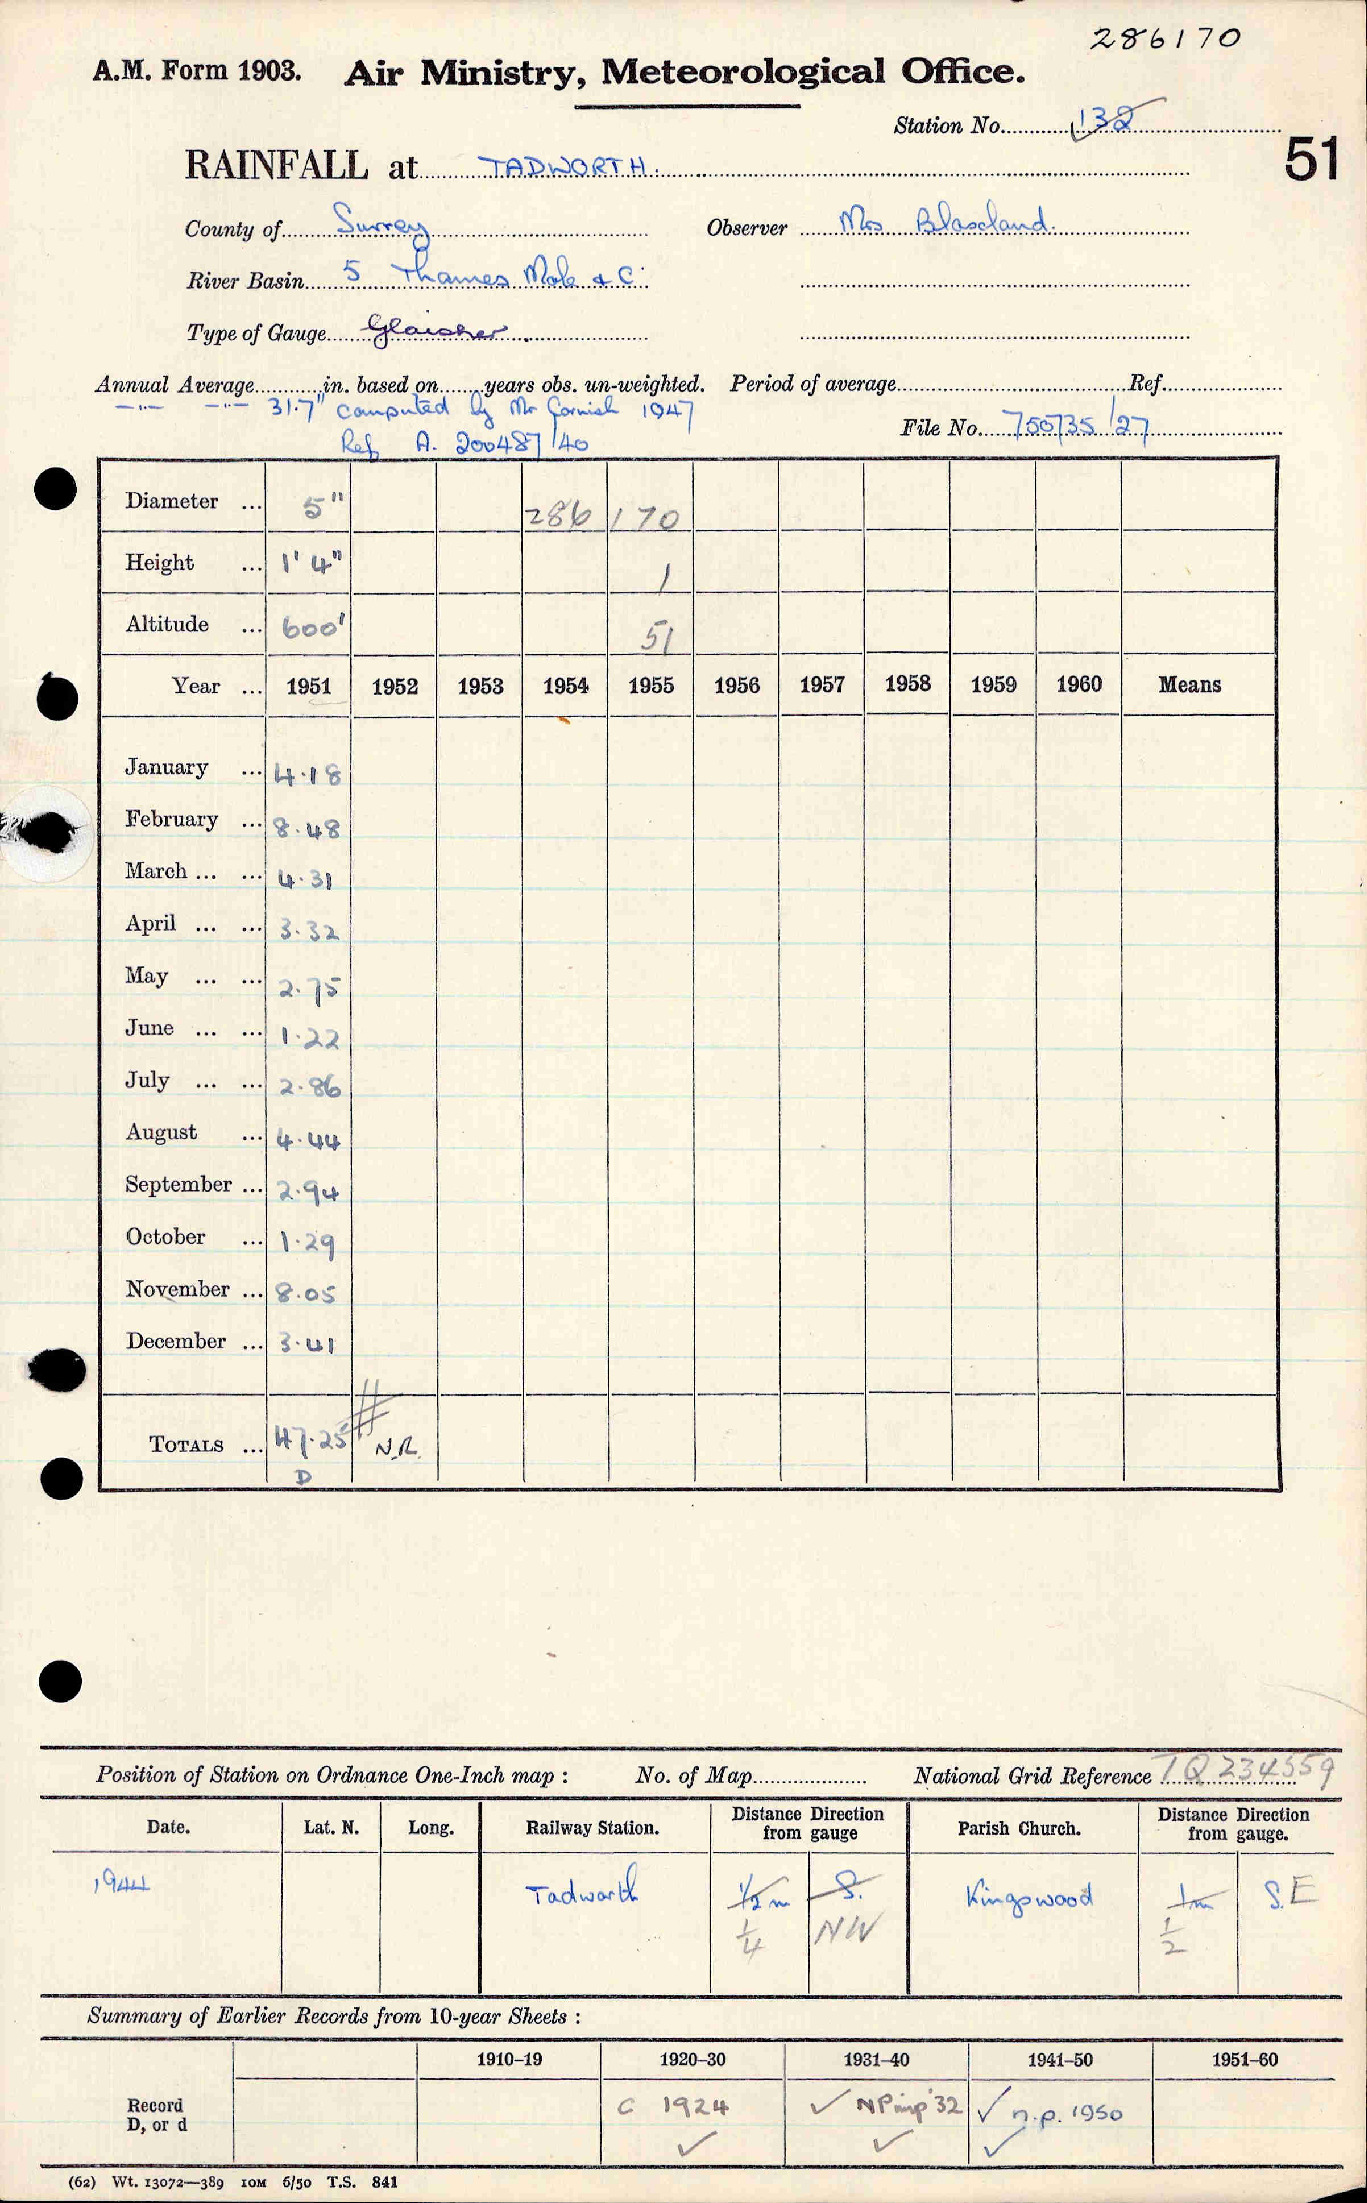 286170
A.M. Form 1903. Air Ministry, Meteorological Office.
Station No. 132
51
RAINFALL at TADWORTH.
County of Surrey Observer Mrs Blaxland.
River Basin 5 Thames Mole & C
Type of Gauge Glaisher
Annual Average in. based on years obs. un-weighted. Period of average Ref.
-"- -"- 31.7" computed by Mr Cornish 1947
File No. 750735/27
Ref A. 200487/40
Diameter ... 5" 286 170
Height ... 1' 4" 1
Altitude ... 600' 51
Year ... 1951 1952 1953 1954 1955 1956 1957 1958 1959 1960 Means
January ... 4.18
February ... 8.48
March ... ... 4.31
April ... ... 3.32
May ... ... 2.75
June ... ... 1.22
July ... ... 2.86
August ... 4.44
September ... 2.94
October ... 1.29
November ... 8.05
December ... 3.41
TOTALS ... 47.25 N.R.
D
Position of Station on Ordnance One-Inch map : No. of Map National Grid Reference TQ 234559
Date. Lat. N. Long. Railway Station. Distance Direction from gauge Parish Church. Distance Direction from gauge.
1944 Tadworth 1/2 m S. Kingswood 1m S.E
1/4 NW 1/2
Summary of Earlier Records from 10-year Sheets :
1910-19 1920-30 1931-40 1941-50 1951-60
Record D, or d C 1924 ✓ NP imp '32 ✓ n.p. 1950
✓ ✓ ✓
(62) Wt. 13072—389 10M 6/50 T.S. 841